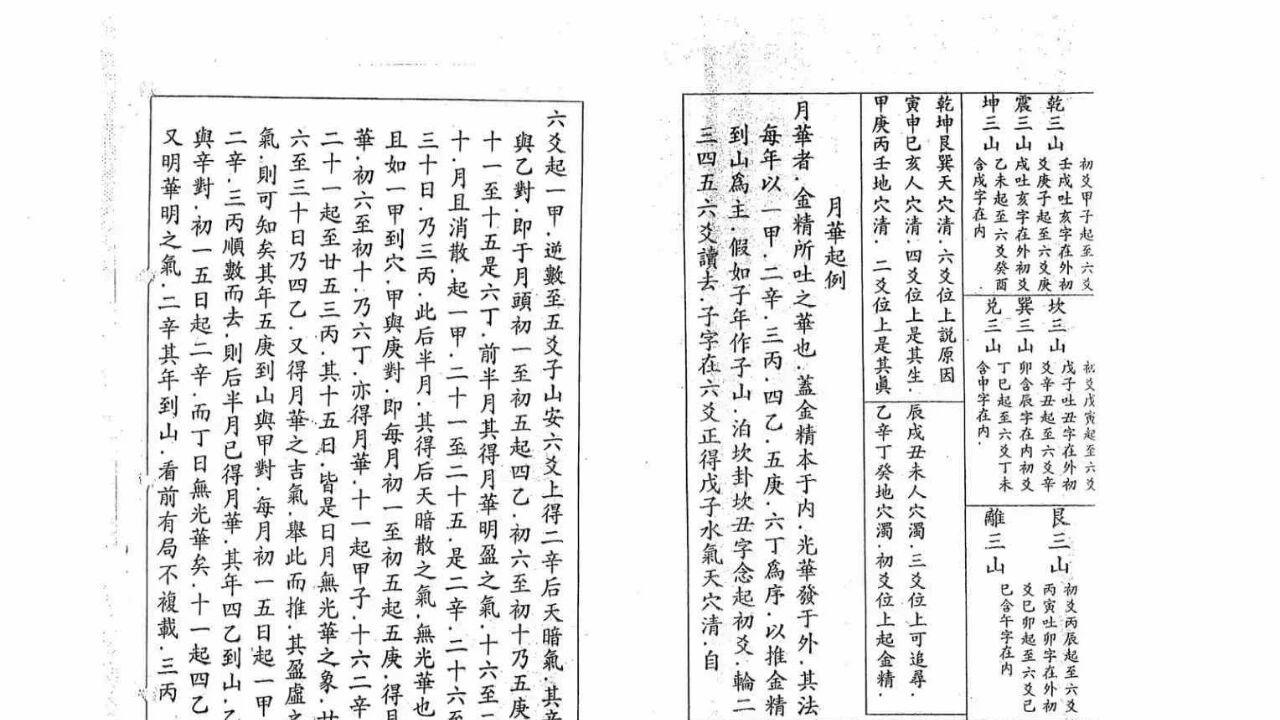 乾三山
初爻甲子起至六爻
壬戌吐亥字在外初
震三山
爻庚子起至六爻庚
戌吐亥字在外初爻
坤三山
乙未起至六爻癸酉
含戌字在內
坎三山
初爻戊寅起至六爻
戊子吐丑字在外初
巽三山
爻辛丑起至六爻辛
卯含辰字在內初爻
兌三山
丁巳起至六爻丁未
含申字在內.
艮三山
初爻丙辰起至六爻
丙寅吐卯字在外初
離三山
爻巳卯起至六爻己
巳含午字在內
乾坤艮巽天穴清.六爻位上説原因
寅申巳亥人穴清.四爻位上是其生.
甲庚丙壬地穴清.二爻位上是其眞
辰戌丑未人穴濁.三爻位上可追尋
乙辛丁癸地穴濁.初爻位上起金精.
月華起例
月華者.金精所吐之華也.蓋金精本于內.光華發于外.其法
每年以一甲.二辛.三丙.四乙.五庚.六丁爲序.以推金精
到山爲主.假如子年作子山.泊坎卦坎丑字念起初爻.輪二
三四五六爻讀去.子字在六爻正得戊子水氣天穴清.自
六爻起一甲.逆數至五爻子山安六爻上得二辛后天暗氣.其辛
與乙對.即于月頭初一至初五起四乙.初六至初十乃五庚
十一至十五是六丁.前半月其得月華明盈之氣.十六至二
十.月且消散.起一甲.二十一至二十五.是二辛.二十六至
三十日.乃三丙.此后半月.其得后天暗散之氣.無光華也
且如一甲到穴.甲與庚對.即每月初一至初五起五庚.得月
華.初六至初十.乃六丁.亦得月華.十一起甲子.十六二辛
二十一起至廿五三丙.其十五日.皆是日月無光華之象.廿
六至三十日乃四乙.又得月華之吉氣.舉此而推.其盈虛之
氣.則可知矣其年五庚到山與甲對.每月初一五日起一甲
二辛.三丙順數而去.則后半月已得月華.其年四乙到山.乙
與辛對.初一五日起二辛.而丁日無光華矣.十一起四乙
又明華明之氣.二辛其年到山.看前有局不複載.三丙